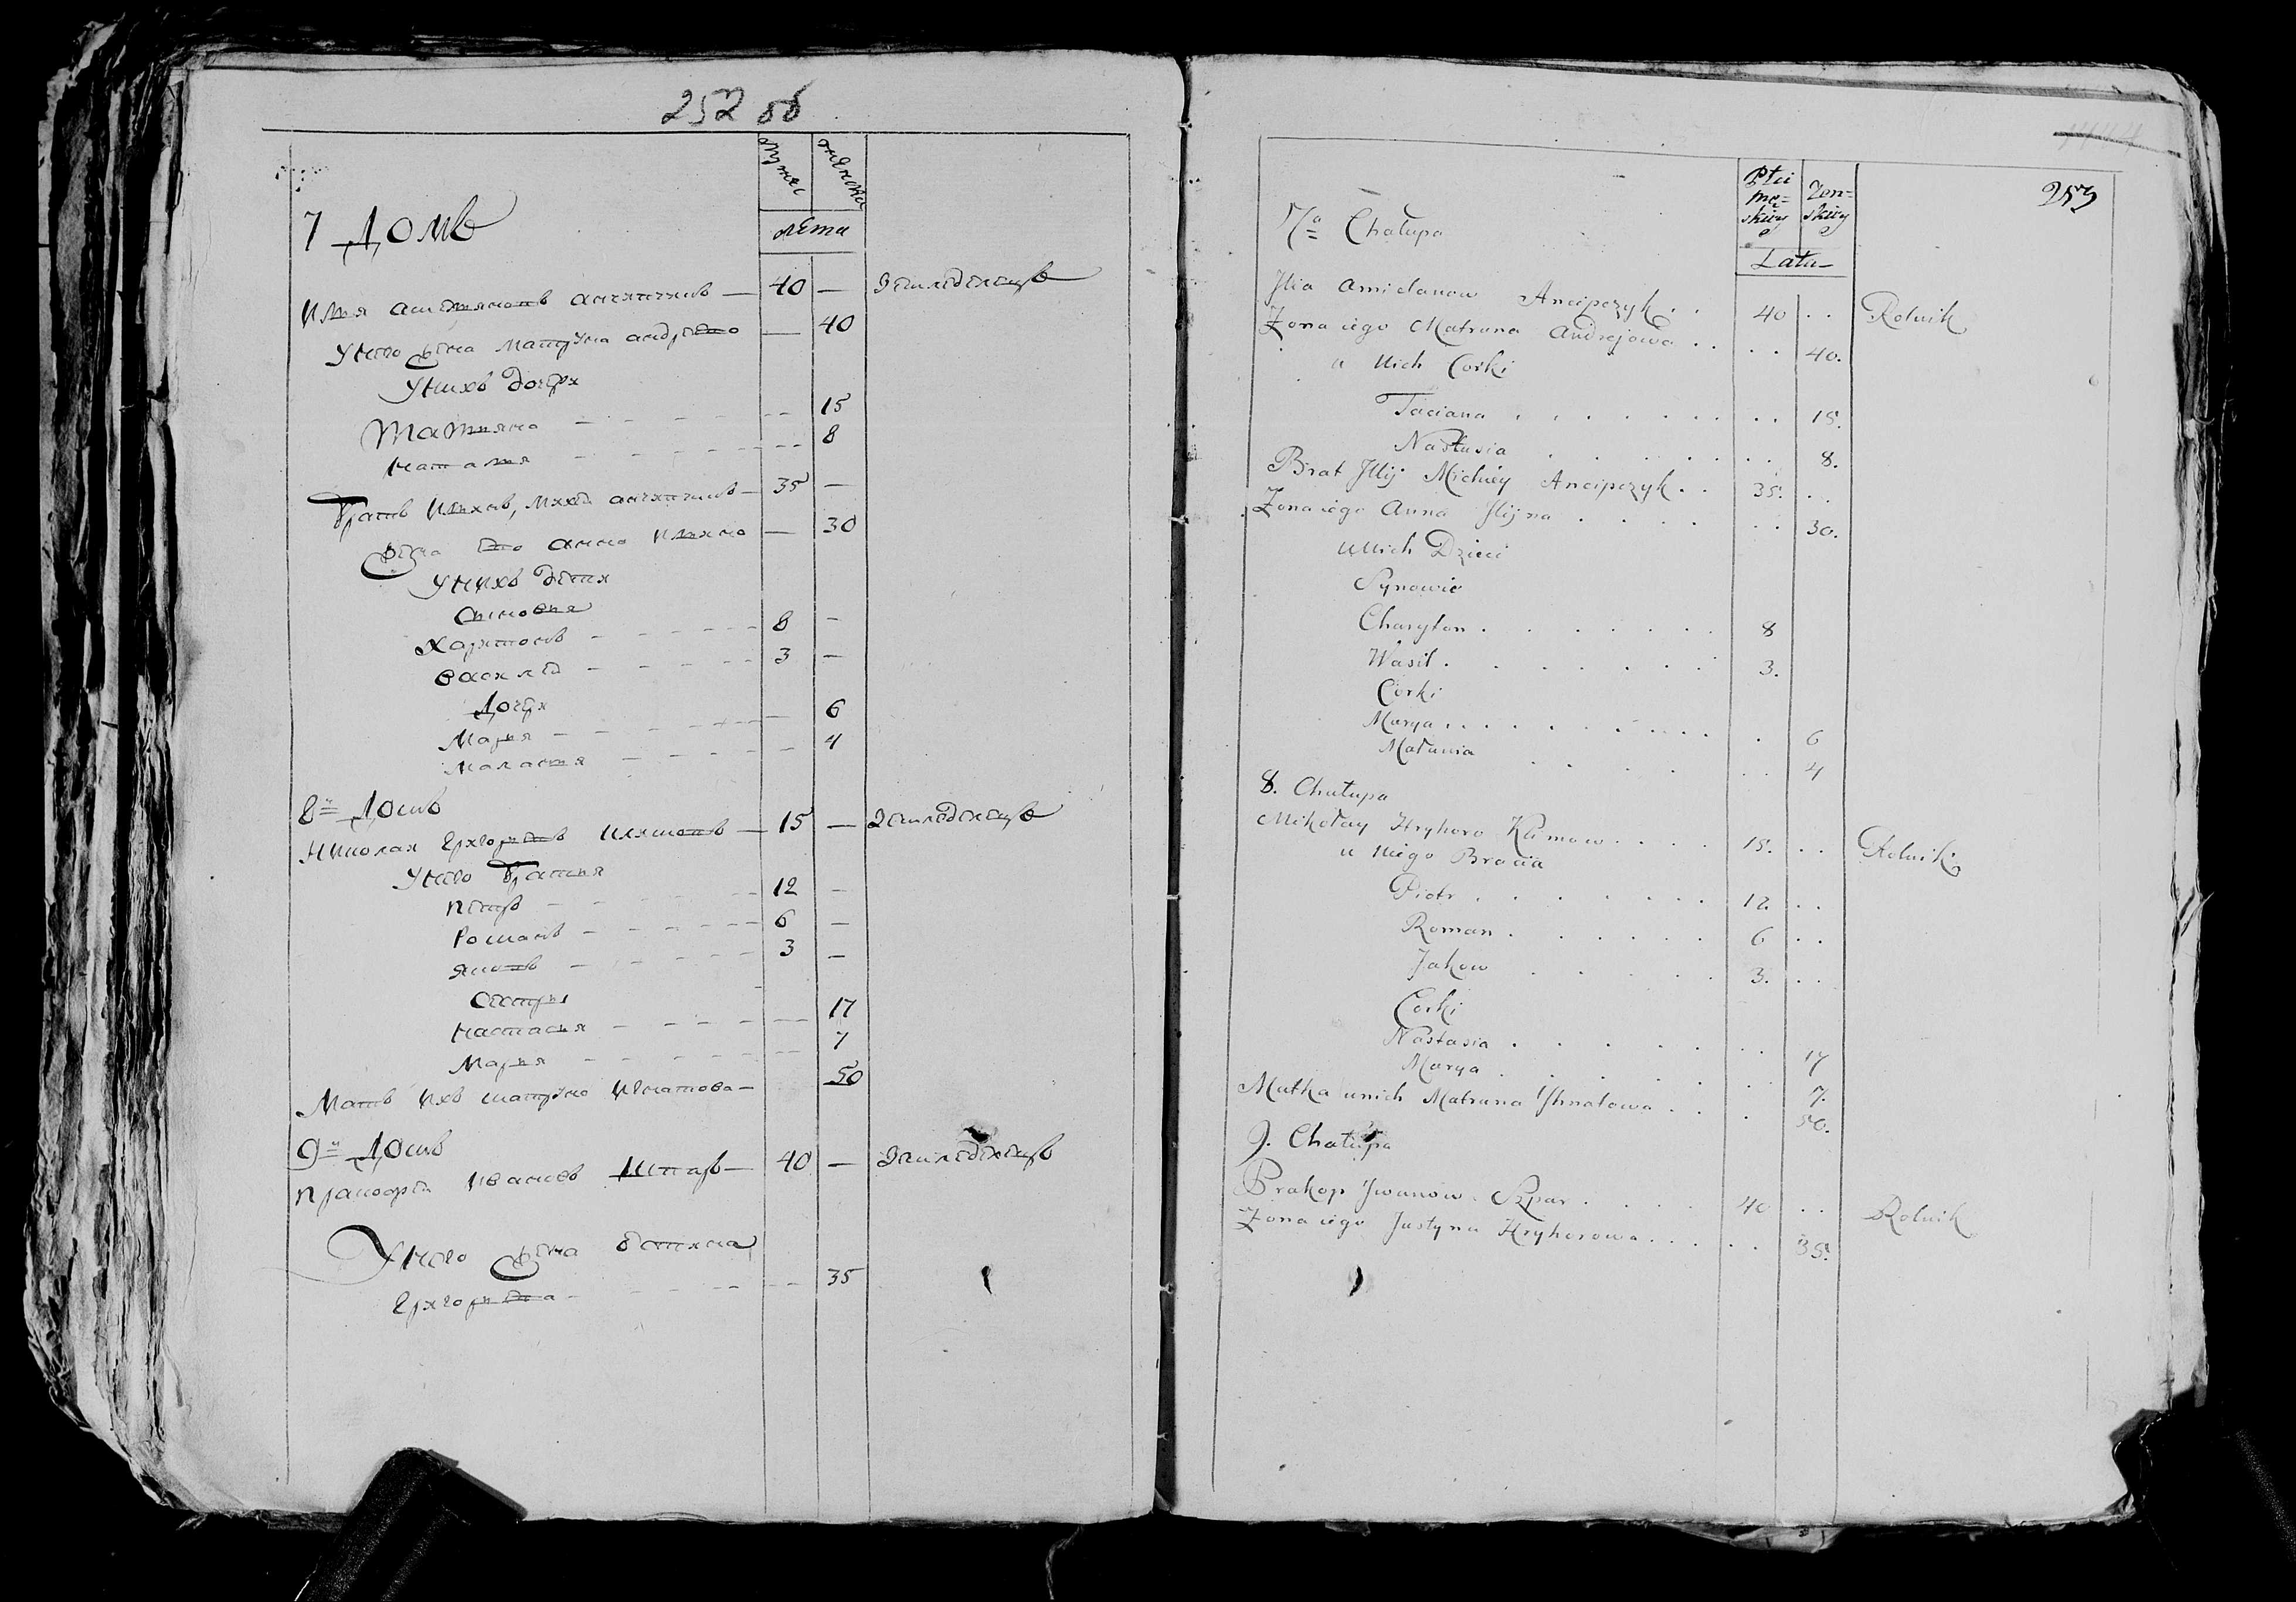 252 об
мужес женска
лета
7 Домъ
Илья Амельяновъ Анчипчикъ — 40 — Земледелецъ
У него жена Матруна Андреева — 40
У нихъ дочери
Татияна — 15
Наталия — 8
Братъ Ильинъ, Михей Анчипчикъ — 35 —
Жена его Анна Ильина — 30
У нихъ дети
Сыновья
Харитонъ — 8 —
Василей — 3 —
Дочери
Марья — 6
Маланья — 4
8й Домъ
Николай Григорьевъ Климовъ — 15 — Земледелецъ
У него братья
Петръ — 12 —
Романъ — 6 —
Яковъ — 3 —
Сестры
Настасья — 17
Марья — 7
Мать ихъ Матруна Игнатова — 50
9й Домъ
Пракофей Ивановъ Шпаръ — 40 — Земледелецъ
У него жена Устина
Григорьева — 35
253
Płci mę= skiey Żen= skiey
Lata
7a Chałupa
Jlia Amielanow Ancipczyk . . 40 . . Rolnik
Żona iego Matruna Andrejowa . . . . 40.
u Nich Corki
Taciana . . . . . . . . . 15.
Nastasia . . . . . . . . 8.
Brat Jlij Michiey Ancipczyk . . 35. . .
Żona iego Anna Jlijna . . . . . . 30.
u Nich Dzieci
Synowie
Charyton . . . . . . . 8
Wasil . . . . . . . 3.
Corki
Marya . . . . . . . . . . 6
Małania . . . . . . 4
8. Chałupa
Mikołay Hryhoro Klimow . . . . 15. . . Rolnik
u Niego Bracia
Piotr . . . . . . . 12. . .
Roman . . . . . . 6 . .
Jakow . . . . . 3. . .
Corki
Nastasia . . . . . . . . 17
Marya . . . . . . . . 7.
Matka u nich Matruna Jhnatowa . . . . 50.
9. Chałupa
Prakop Jwanow Szpar . . . . 40 . . Rolnik
Żona iego Justyna Hryhorowa . . . . . 35.